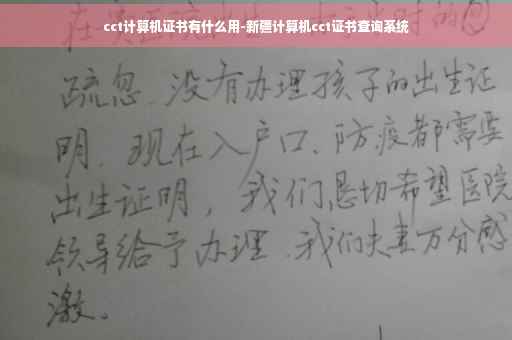 cct计算机证书有什么用-新疆计算机cct证书查询系统
疏忽、没有办理孩子的出生证
明、现在入户口、防疫都需要
出生证明，我们恳切希望医院
领导给予办理、我们夫妻万分感
激。